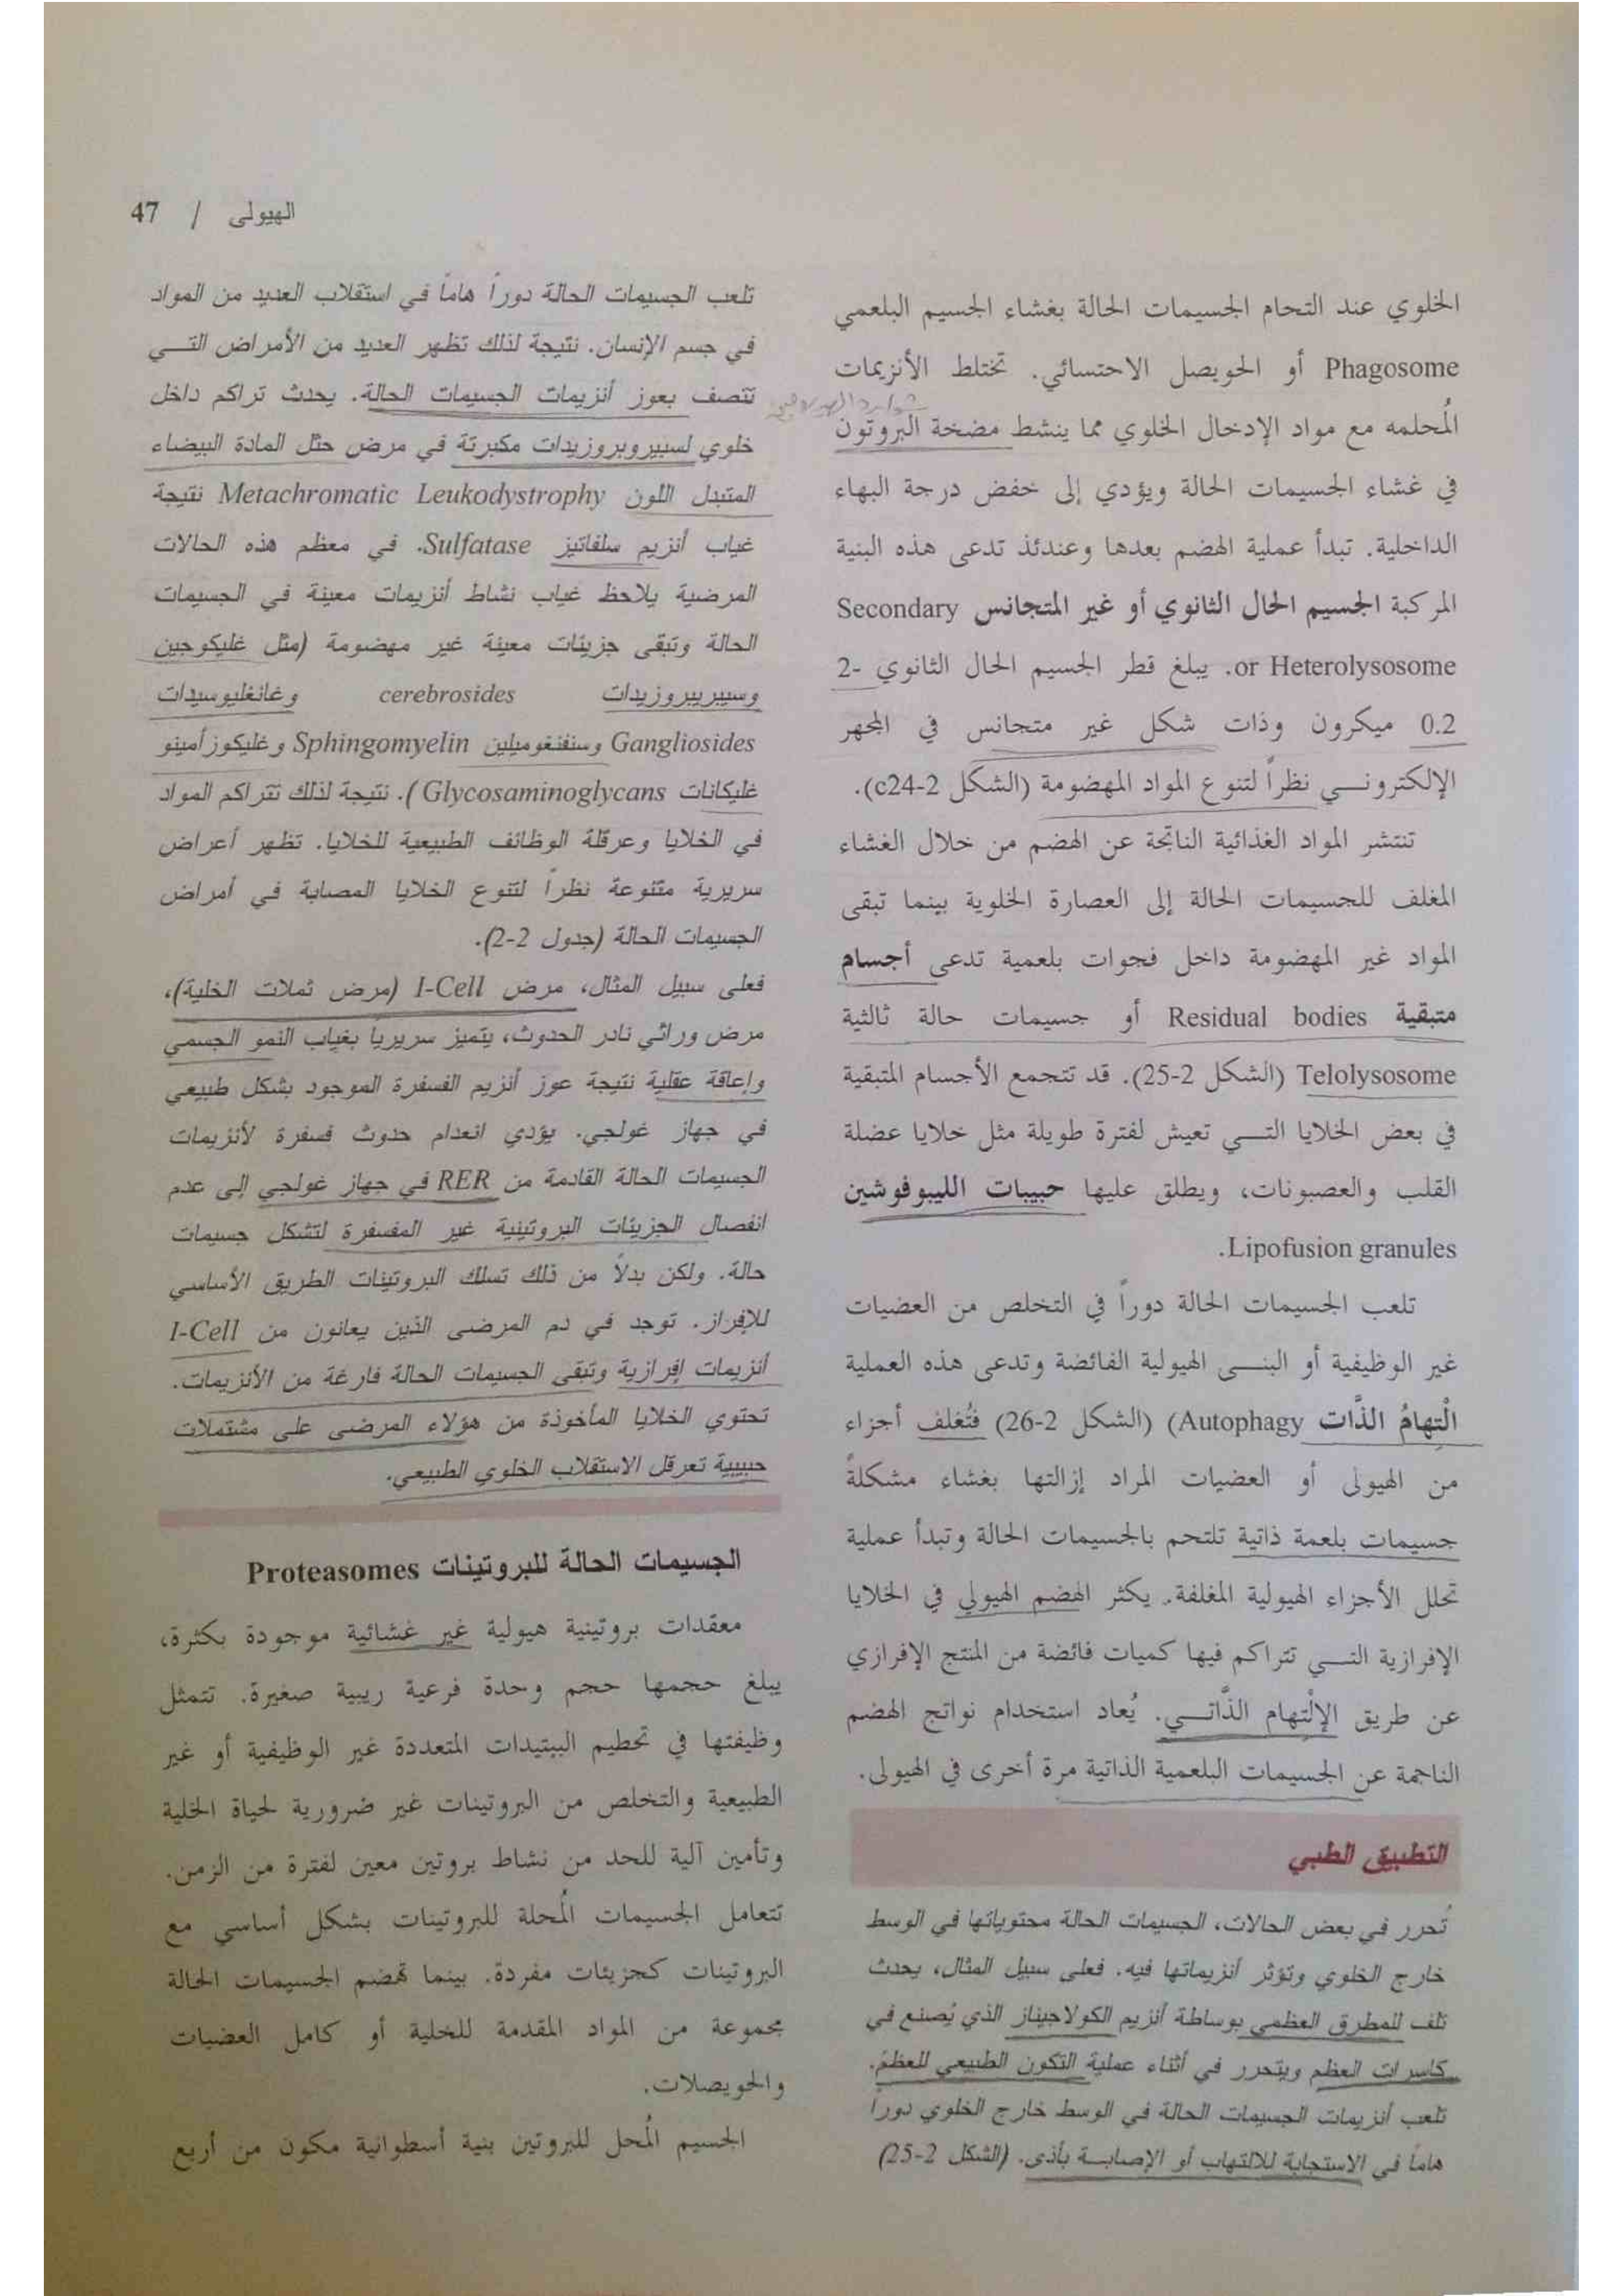 الهيولى / 47
الخلوي عند التحام الجسيمات الحالة بغشاء الجسيم البلعمي
Phagosome أو الحويصل الاحتسائي. تختلط الأنزيمات
المُحلمه مع مواد الإدخال الخلوي مما ينشط مضخة البروتون
في غشاء الجسيمات الحالة ويؤدي إلى خفض درجة البهاء
الداخلية. تبدأ عملية الهضم بعدها وعندئذ تدعى هذه البنية
المركبة الجسيم الحال الثانوي أو غير المتجانس Secondary
or Heterolysosome. يبلغ قطر الجسيم الحال الثانوي 2-
0.2 ميكرون وذات شكل غير متجانس في المجهر
الإلكترونـــي نظراً لتنوع المواد المهضومة (الشكل 2-c24).
تنتشر المواد الغذائية الناتجة عن الهضم من خلال الغشاء
المغلف للجسيمات الحالة إلى العصارة الخلوية بينما تبقى
المواد غير المهضومة داخل فجوات بلعمية تدعى أجسام
متبقية Residual bodies أو جسيمات حالة ثالثية
Telolysosome (الشكل 2-25). قد تتجمع الأجسام المتبقية
في بعض الخلايا التـــي تعيش لفترة طويلة مثل خلايا عضلة
القلب والعصبونات، ويطلق عليها حبيبات الليبوفوشين
Lipofusion granules.
تلعب الجسيمات الحالة دوراً في التخلص من العضيات
غير الوظيفية أو البنـــى الهيولية الفائضة وتدعى هذه العملية
الْتِهامُ الذَّات Autophagy) (الشكل 2-26) فتُغلف أجزاء
من الهيولى أو العضيات المراد إزالتها بغشاء مشكلةً
جسيمات بلعمة ذاتية تلتحم بالجسيمات الحالة وتبدأ عملية
تحلل الأجزاء الهيولية المغلفة. يكثر الهضم الهيولي في الخلايا
الإفرازية التـــي تتراكم فيها كميات فائضة من المنتج الإفرازي
عن طريق الإلْتِهام الذَّاتـــي. يُعاد استخدام نواتج الهضم
الناجمة عن الجسيمات البلعمية الذاتية مرة أخرى في الهيولى.
التطبيق الطبي
تُحرر في بعض الحالات، الجسيمات الحالة محتوياتها في الوسط
خارج الخلوي وتؤثر أنزيماتها فيه. فعلى سبيل المثال، يحدث
تلف للمطرق العظمي بوساطة أنزيم الكولاجيناز الذي يُصنع في
كاسرات العظم ويتحرر في أثناء عملية التكون الطبيعي للعظم.
تلعب أنزيمات الجسيمات الحالة في الوسط خارج الخلوي دوراً
هاماً في الاستجابة للالتهاب أو الإصابـــة بأذى. (الشكل 2-25)
تلعب الجسيمات الحالة دوراً هاماً في استقلاب العديد من المواد
في جسم الإنسان. نتيجة لذلك تظهر العديد من الأمراض التـــي
تتصف بعوز أنزيمات الجسيمات الحالة. يحدث تراكم داخل
خلوي لسيبروبروزيدات مكبرتة في مرض حثل المادة البيضاء
المتبدل اللون Metachromatic Leukodystrophy نتيجة
غياب أنزيم سلفاتيز Sulfatase. في معظم هذه الحالات
المرضية يلاحظ غياب نشاط أنزيمات معينة في الجسيمات
الحالة وتبقى جزيئات معينة غير مهضومة (مثل غليكوجين
وسيبريبروزيدات cerebrosides وغانغليوسيدات
Gangliosides وسنفنغوميلين Sphingomyelin وغليكوزأمينو
غليكانات Glycosaminoglycans). نتيجة لذلك تتراكم المواد
في الخلايا وعرقلة الوظائف الطبيعية للخلايا. تظهر أعراض
سريرية متنوعة نظراً لتنوع الخلايا المصابة في أمراض
الجسيمات الحالة (جدول 2-2).
فعلى سبيل المثال، مرض I-Cell (مرض ثملات الخلية)،
مرض وراثي نادر الحدوث، يتميز سريرياً بغياب النمو الجسمي
وإعاقة عقلية نتيجة عوز أنزيم الفسفرة الموجود بشكل طبيعي
في جهاز غولجي. يؤدي انعدام حدوث فسفرة لأنزيمات
الجسيمات الحالة القادمة من RER في جهاز غولجي إلى عدم
انفصال الجزيئات البروتينية غير المفسفرة لتشكل جسيمات
حالة. ولكن بدلاً من ذلك تسلك البروتينات الطريق الأساسي
للإفراز. توجد في دم المرضى الذين يعانون من I-Cell
أنزيمات إفرازية وتبقى الجسيمات الحالة فارغة من الأنزيمات.
تحتوي الخلايا المأخوذة من هؤلاء المرضى على مشتملات
حبيبية تعرقل الاستقلاب الخلوي الطبيعي.
الجسيمات الحالة للبروتينات Proteasomes
معقدات بروتينية هيولية غير غشائية موجودة بكثرة،
يبلغ حجمها حجم وحدة فرعية ريبية صغيرة. تتمثل
وظيفتها في تحطيم الببتيدات المتعددة غير الوظيفية أو غير
الطبيعية والتخلص من البروتينات غير ضرورية لحياة الخلية
وتأمين آلية للحد من نشاط بروتين معين لفترة من الزمن.
تتعامل الجسيمات المُحلة للبروتينات بشكل أساسي مع
البروتينات كجزيئات مفردة. بينما تهضم الجسيمات الحالة
مجموعة من المواد المقدمة للخلية أو كامل العضيات
والحويصلات.
الجسيم المُحل للبروتين بنية أسطوانية مكون من أربع